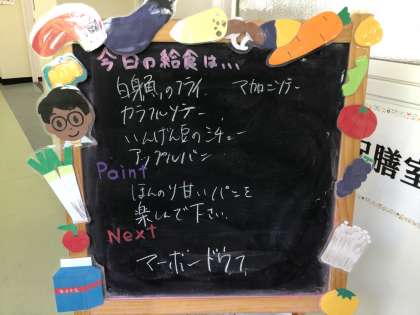 今日の給食は...
白身魚のフライ マカロニソテー
カラフルソテー
いんげん豆のシチュー
アップルパン
Point
ほんのり甘いパンを
楽しんで下さい
Next
マーボードウフ
配膳室